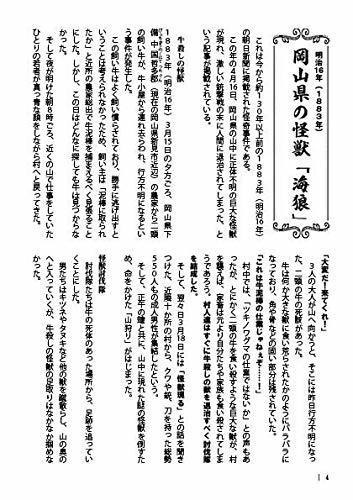 明治16年（1883年）
岡山県の怪獣「海狼」
これは今から約130年以上前の1883年（明治16年）
の朝日新聞に掲載された怪奇事件である。
この年の4月16日、岡山県の山中に正体不明の巨大な怪獣
が現れ、激しい銃撃戦の末に人間に退治されてしまった、と
いう記事が掲載されている。
牛殺しの怪獣
1883年（明治16年）3月15日の夕方ごろ、岡山県下
備中国哲多郡（現在の岡山県新見市近辺）の農家から二頭
の飼い牛が、牛小屋から連れ去られ、行方不明になるとい
う事件が発生した。
この飼い牛はよく飼い慣らされており、勝手に逃げ出すと
いうことは考えられなかったため、飼い主は「泥棒に取られ
たか」と近所の農家総出で牛泥棒を捕まえるべく見張ること
にした。しかし、この日はどんなに探しても牛は見つからな
そして夜が明けた朝8時ごろ、近くの山で仕事をしていた
ひとりの若者が真っ青な顔をしながら村へと戻ってきた。
「大変だ！来てくれ！」
3人の大人が山へ向かうと、そこには昨日行方不明になっ
た、二頭の牛の死骸があった。
牛は何か大きな獣に食い荒らされたかのようにバラバラに
なっており、角や骨などの固い部分は残されていた。
「これは牛泥棒の仕業じゃねぇぞ……」
村中では、「ツキノワグマの仕業ではないか」との声もあ
ったが、とにかく二頭の牛を食い殺すような巨大な獣が、村
を襲えば、家畜は元より自分たちや家族も食い殺されてしま
うであろう。村人達はすぐに牛殺しの獣を退治すべく討伐隊
を結成した。
そして、翌々日3月18日には「怪獣現る」との話を聞き
つけた、近隣十か所の村から、クワや銃、刀を持った総勢
550人もの成人男性が集結したという。
そして、正午の鐘と共に、山中に現れた謎の怪獣を倒すた
め、命をかけた「山狩り」がはじまった。
怪獣討伐隊
討伐隊たちは牛の死体のあった場所から、足跡を追ってい
男たちはキツネやタヌキなど他の獣を蹴散らし、山の奥の
へと入っていくが、牛殺しの怪獣の足取りはなかなか掴めな
かった。
4